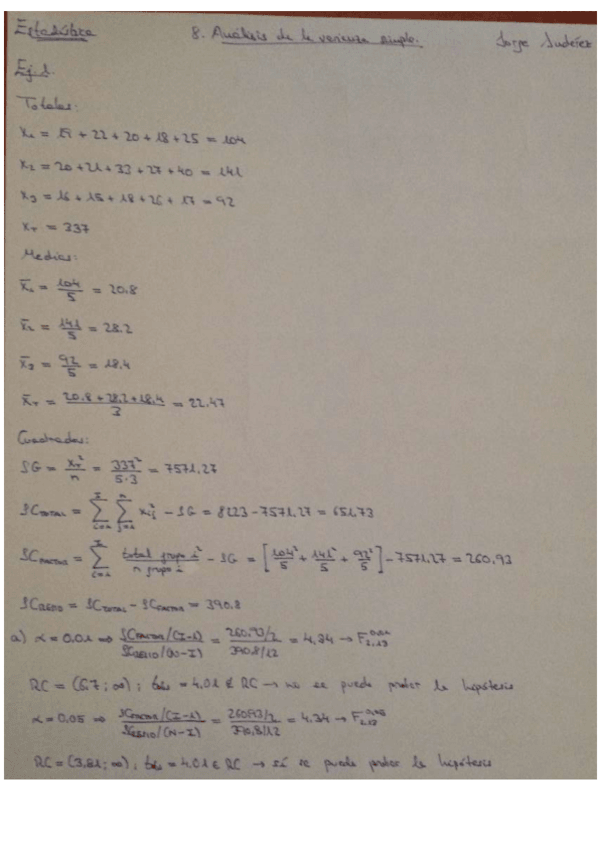 Estadística 8. Análisis de la varianza simple. Jorge Judérez
Ej. 1.
Totales:
x₁ = 19 + 22 + 20 + 18 + 25 = 104
x₂ = 20 + 21 + 33 + 27 + 40 = 141
x₃ = 16 + 15 + 18 + 26 + 17 = 92
x_T = 337
Medias:
x̄₁ = 104/5 = 20.8
x̄₂ = 141/5 = 28.2
x̄₃ = 92/5 = 18.4
x̄_T = (20.8 + 28.2 + 18.4)/3 = 22.47
Cuadrados:
SG = x_T²/n = 337²/(5·3) = 7571.27
SC_TOTAL = Σ Σ x_ij² - SG = 8223 - 7571.27 = 651.73
SC_FACTOR = Σ (total grupo i²)/(n grupo i) - SG = [104²/5 + 141²/5 + 92²/5] - 7571.27 = 260.93
SC_ERROR = SC_TOTAL - SC_FACTOR = 390.8
a) α = 0.01 ⇒ (SC_FACTOR/(I-1))/(SC_ERROR/(N-I)) = (260.93/2)/(390.8/12) =
RC = (6.7; ∞); = 4.01 ∉ RC → no se puede probar la hipótesis
α = 0.05 ⇒ (SC_FACTOR/(I-1))/(SC_ERROR/(N-I)) = (260.93/2)/(390.8/12) = 4.34 →
RC = (3.81; ∞); = 4.01 ∈ RC → sí se puede probar la hipótesis